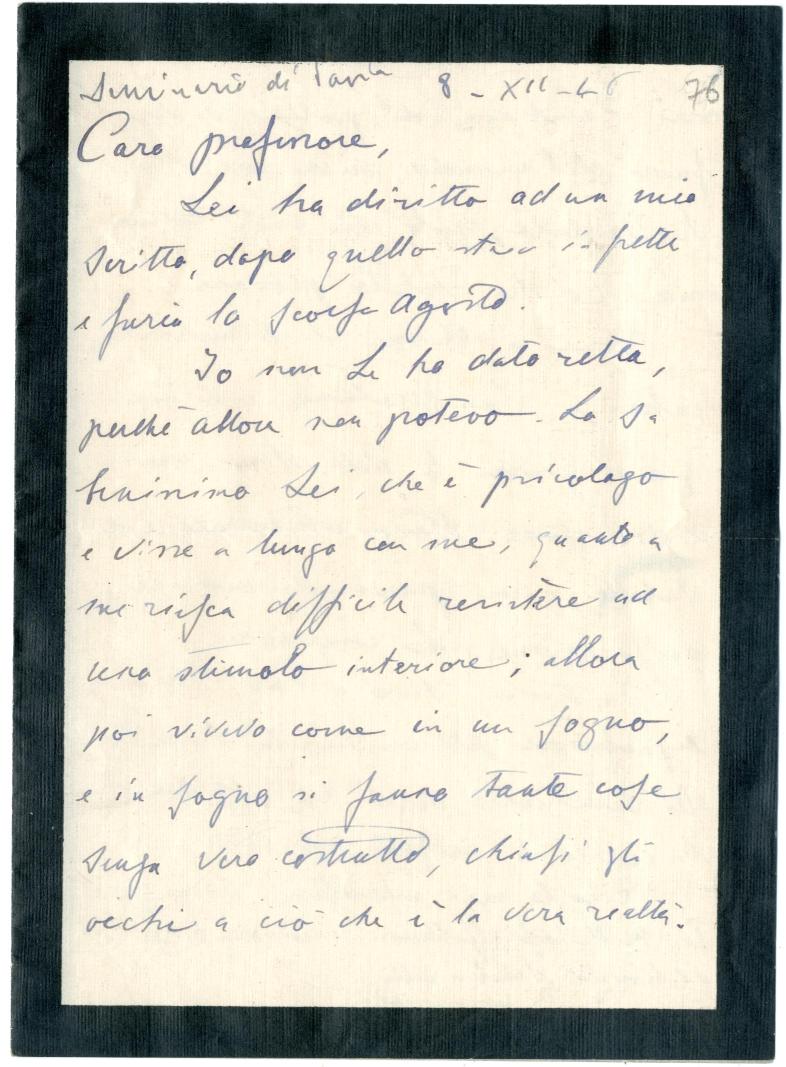 Seminario di Pavia 8 - XII - 46 76
Caro professore,
Lei ha diritto ad un mio
scritto, dopo quello steso in fretta
e furia lo scorso Agosto.
Io non Le ho dato retta,
perché allora non potevo. Lo sa
benissimo Lei, che è psicologo
e visse a lungo con me, quanto a
me riesca difficile resistere ad
uno stimolo interiore; allora
poi vivevo come in un sogno,
e in sogno si fanno tante cose
senza vero costrutto, chiusi gli
occhi a ciò che è la vera realtà.